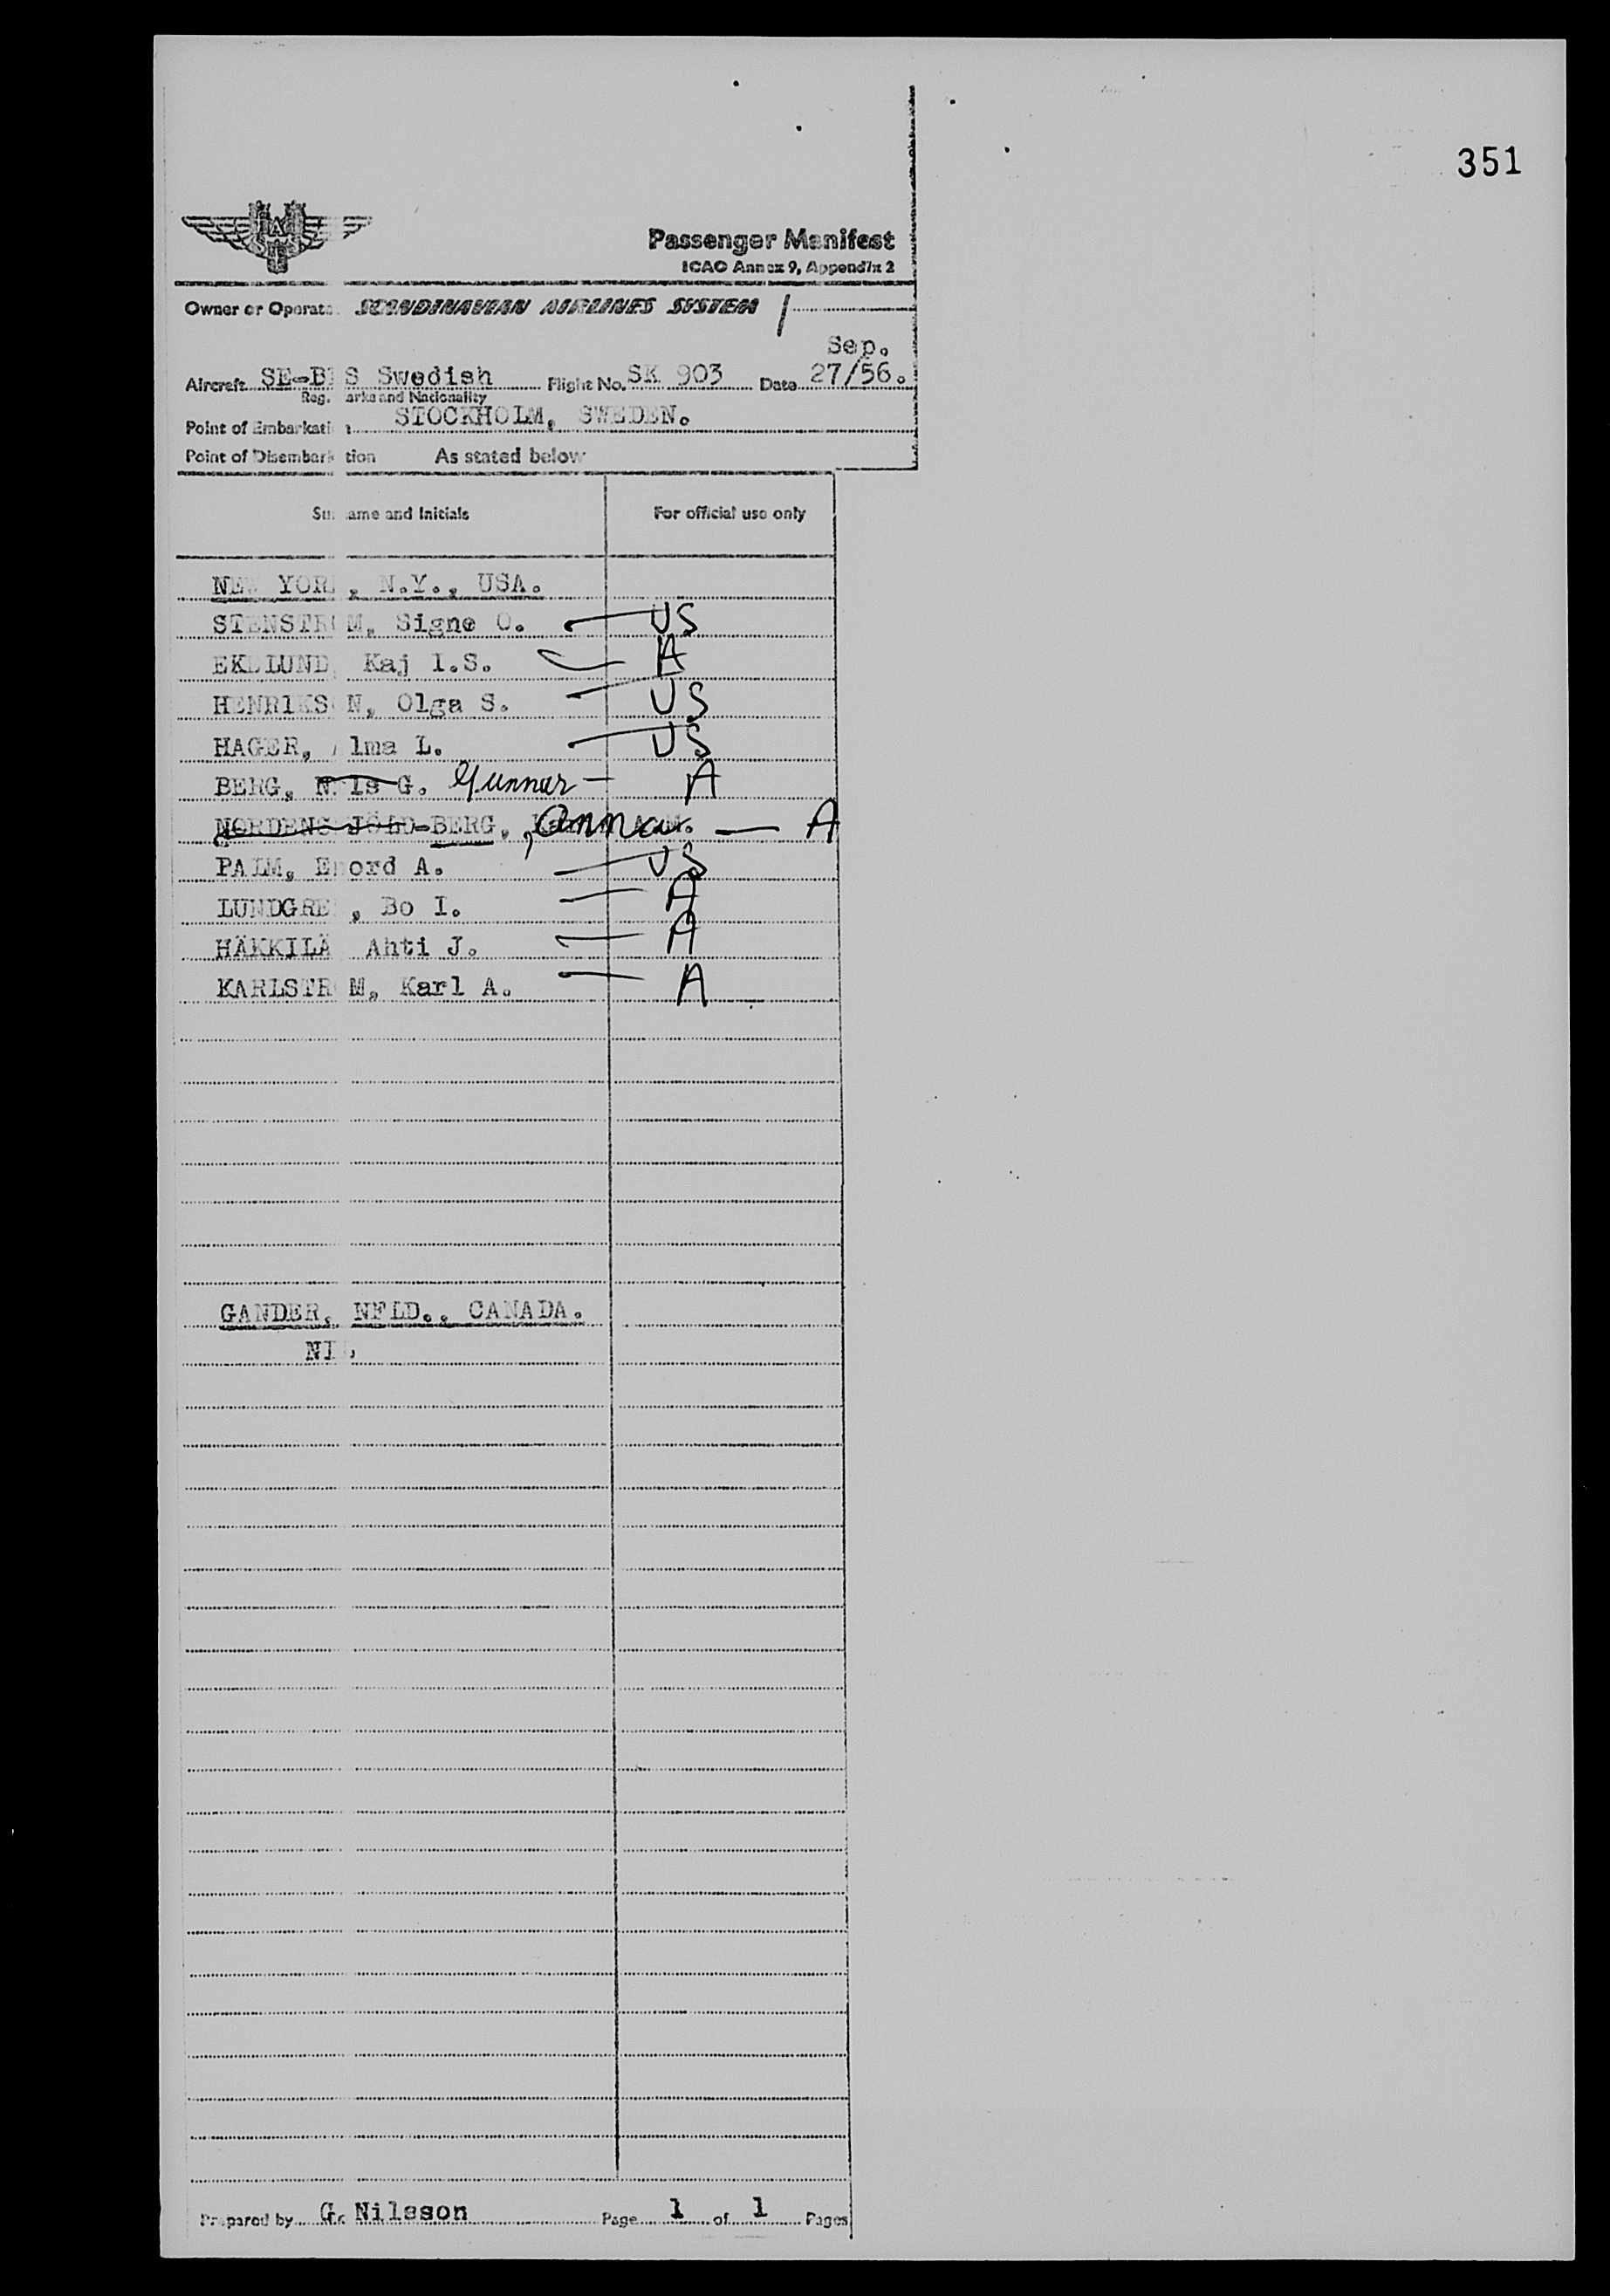 351
SAS
Passenger Manifest
ICAO Annex 9, Appendix 2
Owner or Operato SCANDINAVIAN AIRLINES SYSTEM
Sep.
Aircraft SE-B S Swedish Flight No. SK 903 Date 27/56.
Reg. arks and Nationality
Point of Embarkati n STOCKHOLM, SWEDEN.
Point of Disembark tion As stated below
Su ame and Initials For official use only
NEW YOR , N.Y., USA.
STENSTRO M, Signe O. — US
EKLUND Kaj I.S. — A
HENRIKSO N, Olga S. — US
HAGER, lma L. — US
BERG, N ls G. Gunnar — A
NORDENS JÖLD-BERG, Anna A.M. — A
PALM, E ord A. — US
LUNDGRE , Bo I. — A
HÄKKILÄ Ahti J. — A
KARLSTR M, Karl A. — A
GANDER, NFLD., CANADA.
NIL
Prepared by G. Nilsson Page 1 of 1 Pages